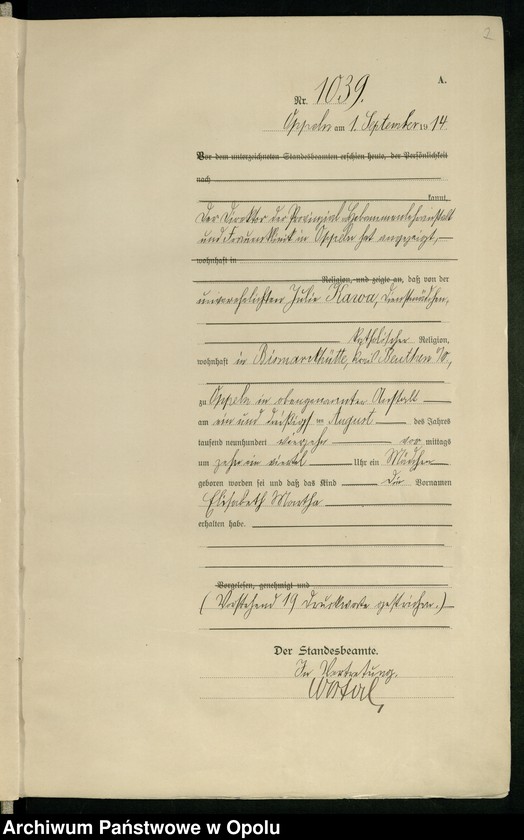 2
A.
Nr. 1039.
Oppeln am 1. September 1914.
Vor dem unterzeichneten Standesbeamten erschien heute, der Persönlichkeit
nach
kannt,
Der Direktor der Provinzial-Hebammenlehranstalt
und Frauenklinik in Oppeln hat angezeigt,
wohnhaft in
Religion, und zeigte an, daß von der
unverehelichten Julie Kawa, Dienstmädchen,
katholischer Religion,
wohnhaft in Bismarckhütte, Kreis Beuthen O/S,
zu Oppeln in obengenannter Anstalt
am ein und dreißigsten August des Jahres
tausend neunhundert vierzehn vor mittags
um zehn ein viertel Uhr ein Mädchen
geboren worden sei und daß das Kind die Vornamen
Elisabeth Martha
erhalten habe.
Vorgelesen, genehmigt und
(Vorstehend 19 Druckworte gestrichen.)
Der Standesbeamte.
In Vertretung.
Archiwum Państwowe w Opolu